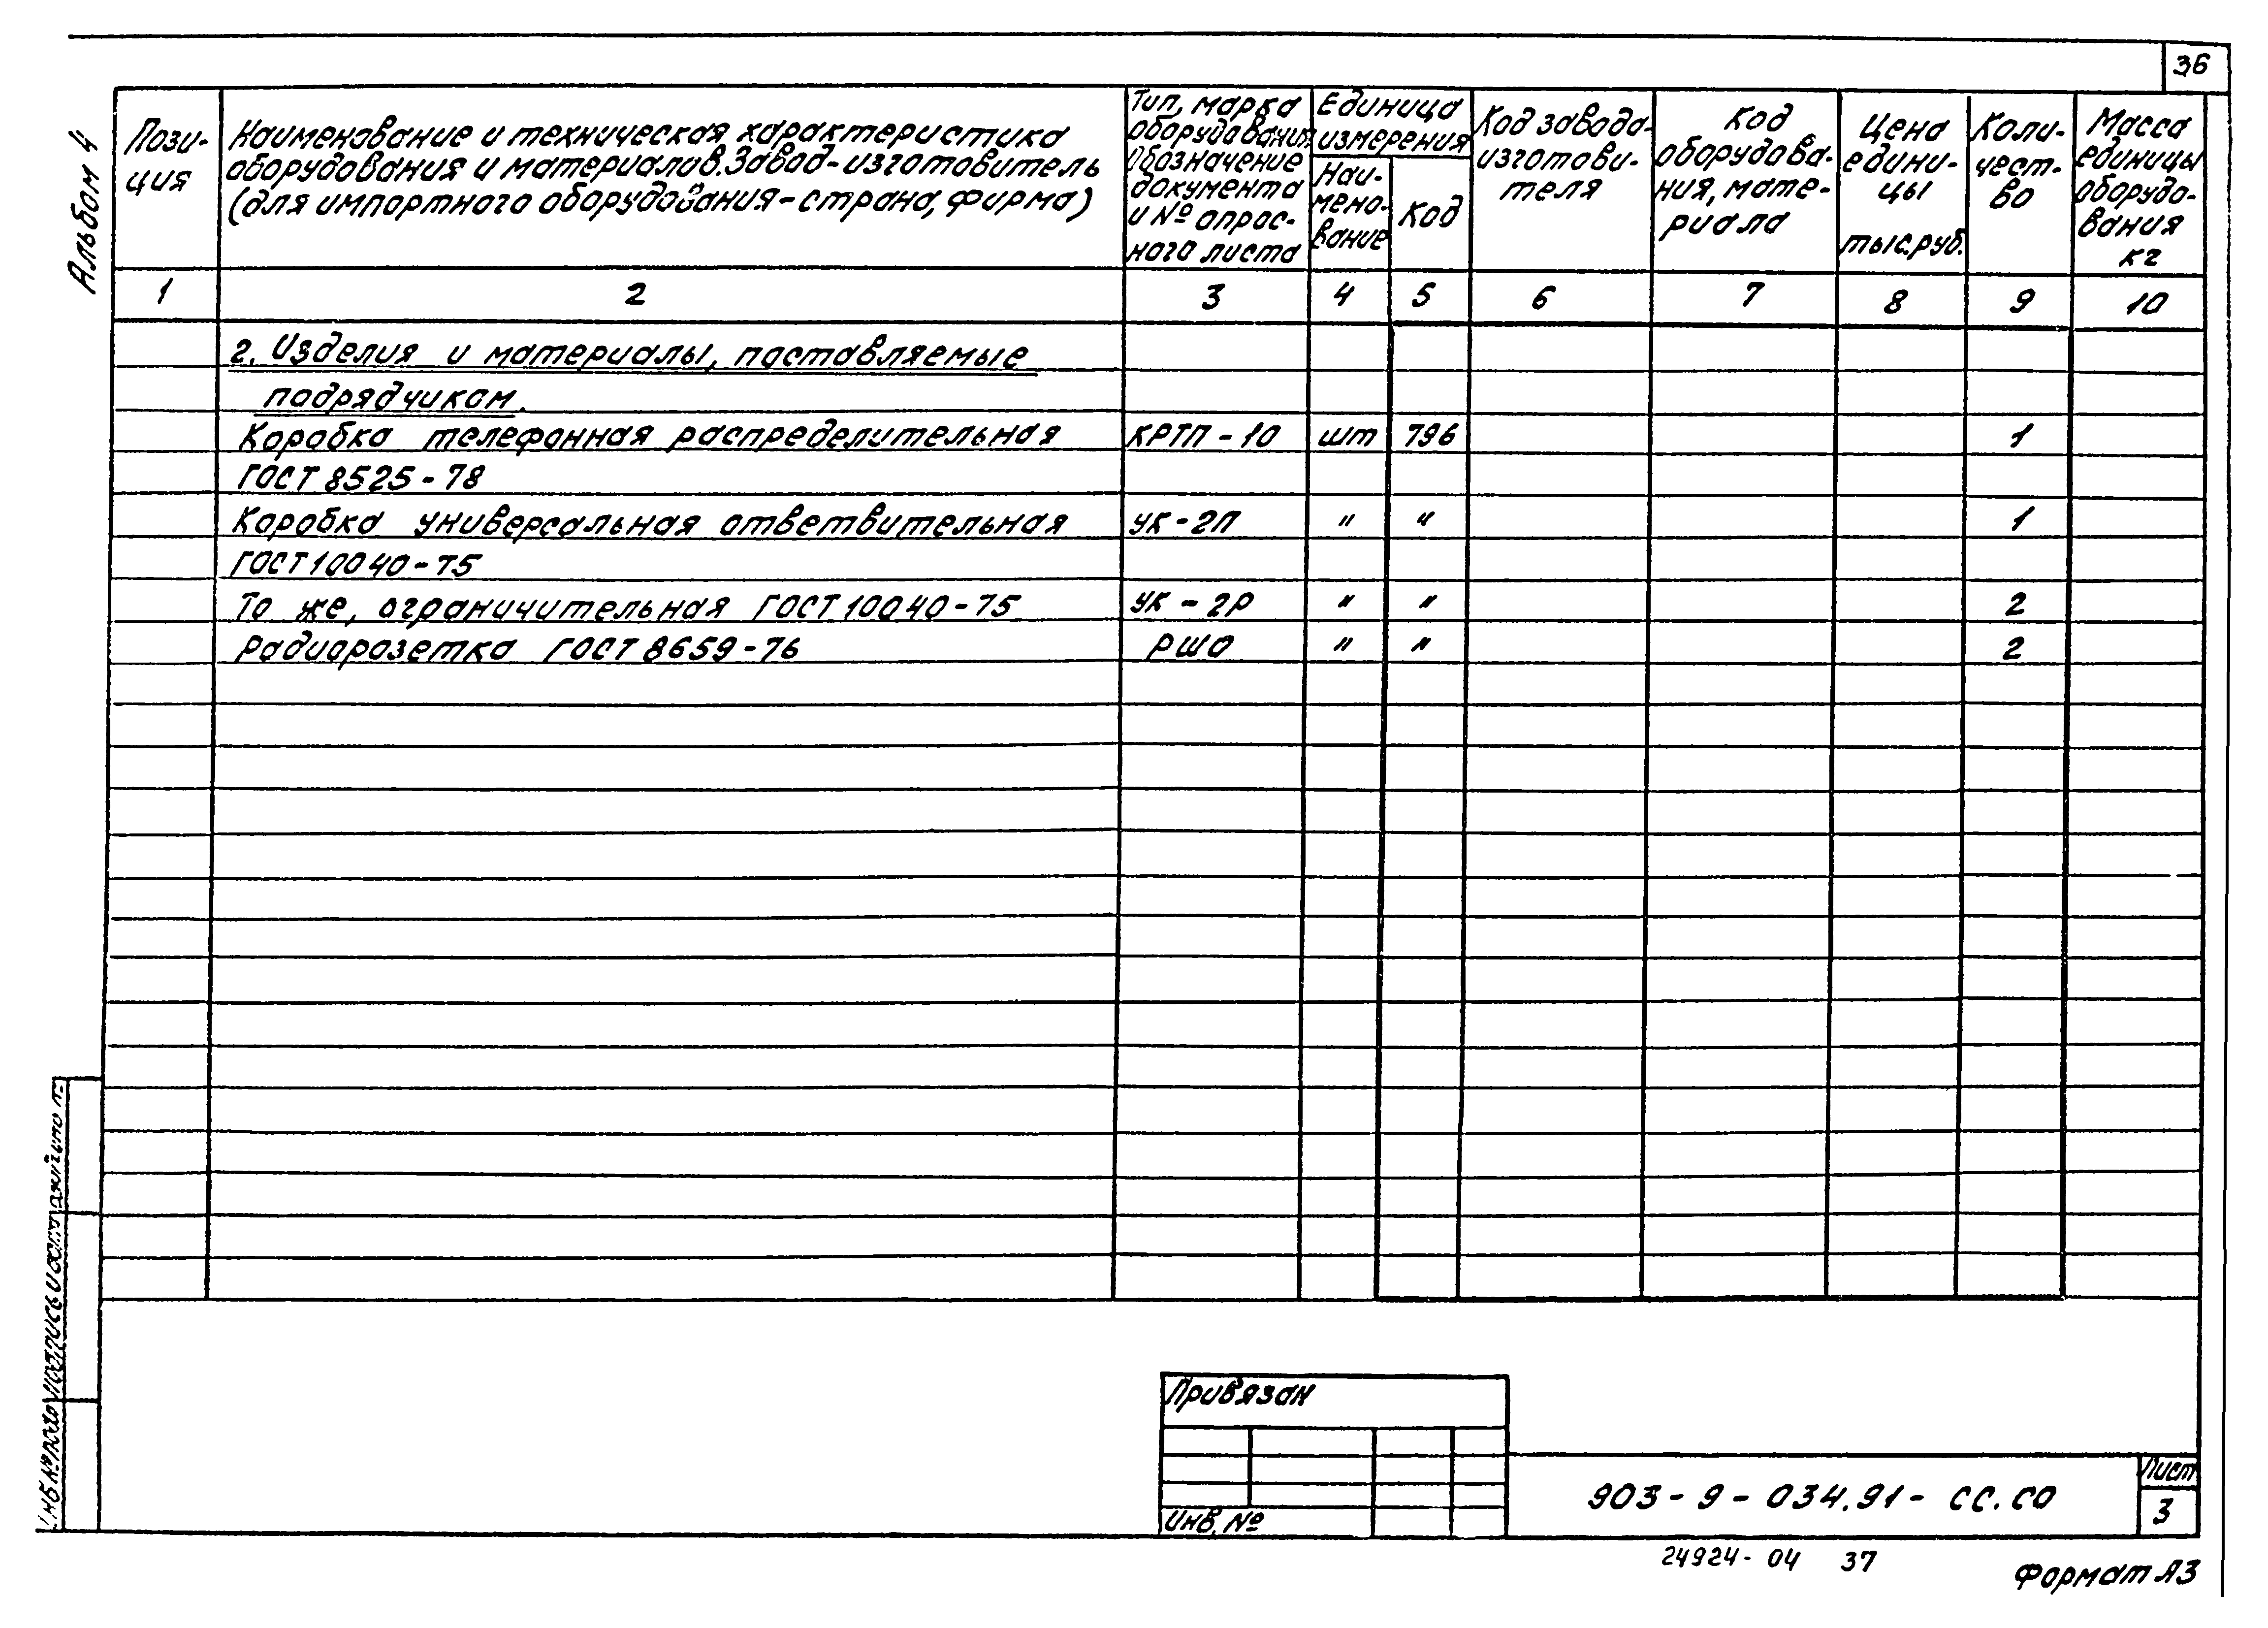 36
Альбом 4
Пози-
ция
Наименование и техническая характеристика
оборудования и материалов. Завод-изготовитель
(для импортного оборудования-страна, фирма)
Тип, марка
оборудования.
Обозначение
документа
и № опрос-
ного листа
Единица
измерения
Наи-
мено-
вание
Код
Код завода-
изготови-
теля
Код
оборудова-
ния, мате-
риала
Цена
едини-
цы
тыс.руб.
Коли-
чест-
во
Масса
единицы
оборудо-
вания
кг
1 2 3 4 5 6 7 8 9 10
2. Изделия и материалы, поставляемые
подрядчиком.
Коробка телефонная распределительная КРТП-10 шт 796 1
ГОСТ 8525-78
Коробка универсальная ответвительная УК-2П " " 1
ГОСТ 10040-75
То же, ограничительная ГОСТ 10040-75 УК-2Р " " 2
Радиорозетка ГОСТ 8659-76 РШО " " 2
Привязан
Инв. №
903-9-034.91-СС.СО
Лист
3
24924-04 37
Формат А3